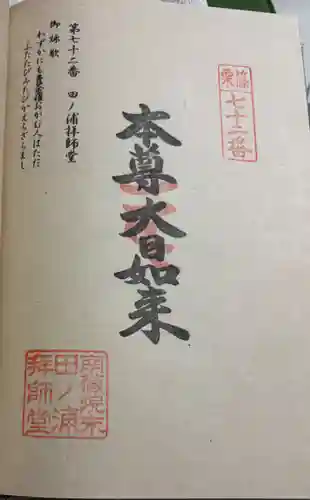 篠栗
七十二番
本尊大日如来
第七十二番 田ノ浦拝師堂
御詠歌
わずかにも曼荼羅おがむ人はただ
ふたたびみたびかえらざらまし
田ノ浦
拝師堂